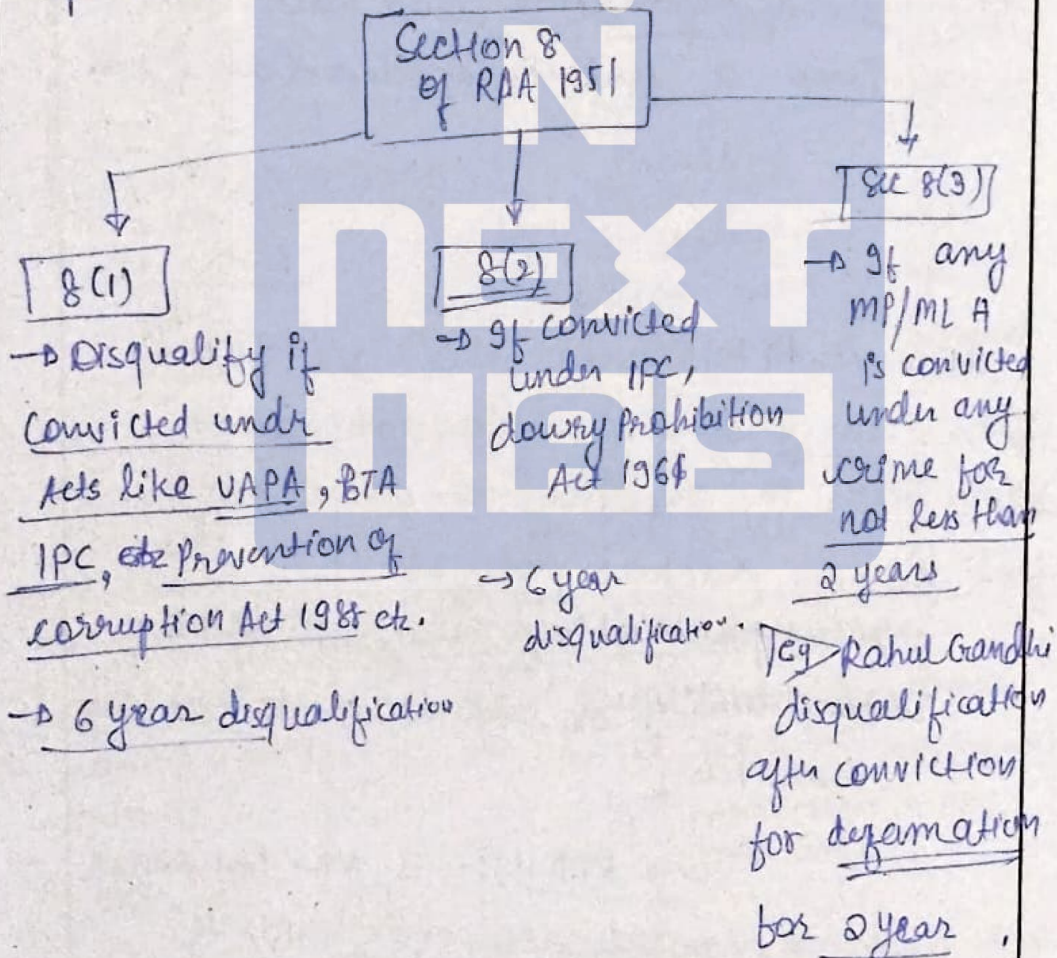 Section 8
of RAA 1951
8(1)
→ Disqualify if
convicted undr
Acts like UAPA, BTA
IPC, etc Prevention of
corruption Act 1988 etc.
→ 6 year disqualification
8(2)
→ If convicted
under IPC,
dowry Prohibition
Act 1961
→ 6 year
disqualification.
Sec 8(3)
→ If any
MP/MLA
is convicted
under any
crime for
not less than
2 years
eg Rahul Gandhi
disqualification
after conviction
for defamation
for 2 year.
NEXT
IAS